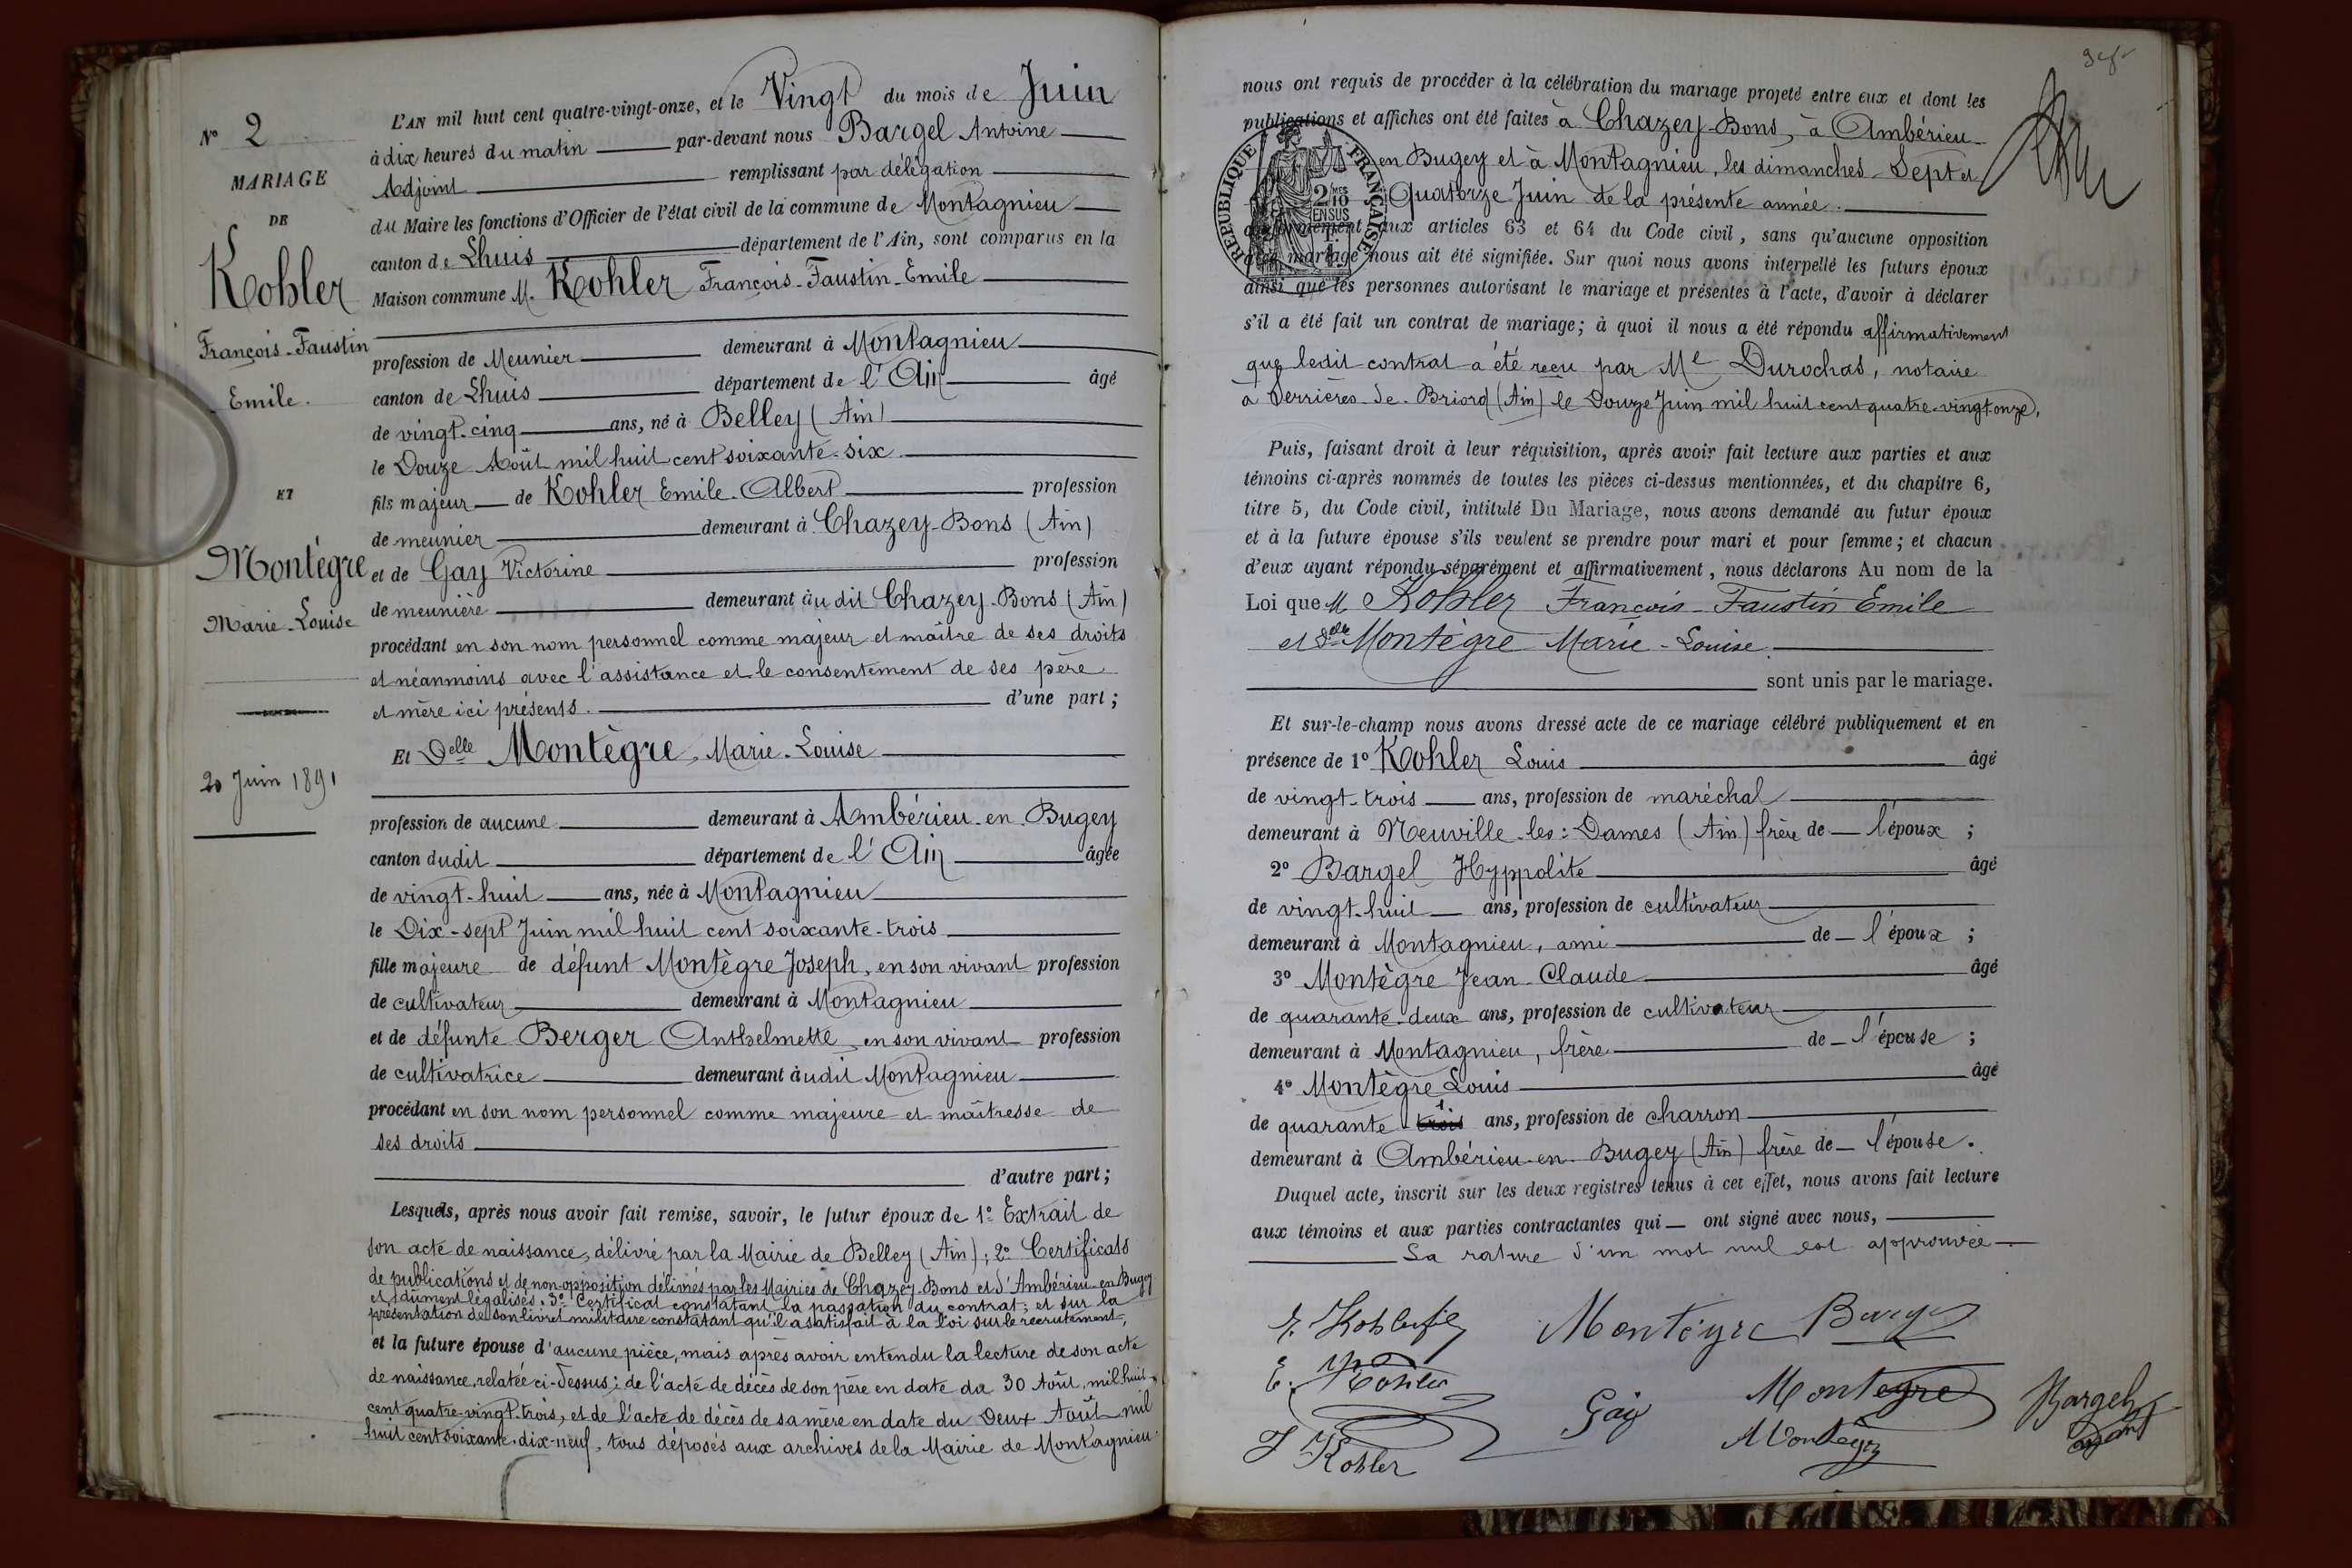 N° 2
MARIAGE
DE
Kohler
François-Faustin
Emile.
ET
Montègre
Marie-Louise
20 Juin 1891
L'AN mil huit cent quatre-vingt-onze, et le Vingt du mois de Juin
à dix heures du matin par-devant nous Bargel Antoine
Adjoint remplissant par délégation
du Maire les fonctions d'Officier de l'état civil de la commune de Montagnieu
canton de Lhuis département de l'Ain, sont comparus en la
Maison commune M. Kohler François-Faustin-Emile
profession de Meunier demeurant à Montagnieu
canton de Lhuis département de l'Ain âgé
de vingt-cinq ans, né à Belley (Ain)
le Douze Août mil huit cent soixante-six.
fils majeur de Kohler Emile-Albert profession
de meunier demeurant à Chazey-Bons (Ain)
et de Gay Victorine profession
de meunière demeurant àudit Chazey-Bons (Ain)
procédant en son nom personnel comme majeur et maître de ses droits
et néanmoins avec l'assistance et le consentement de ses père
et mère ici présents. d'une part;
Et Delle Montègre, Marie-Louise
profession de aucune demeurant à Ambérieu-en-Bugey
canton dudit département de l'Ain âgée
de vingt-huit ans, née à Montagnieu
le Dix-sept Juin mil huit cent soixante-trois
fille majeure de défunt Montègre Joseph, en son vivant profession
de cultivateur demeurant à Montagnieu
et de défunte Berger Anthelmette en son vivant profession
de cultivatrice demeurant àudit Montagnieu
procédant en son nom personnel comme majeure et maîtresse de
ses droits
d'autre part;
Lesquels, après nous avoir fait remise, savoir, le futur époux de 1° Extrait de
son acte de naissance, délivré par la Mairie de Belley (Ain); 2° Certificats
de publications et de non-opposition délivrés par les Mairies de Chazey-Bons et d'Ambérieu-en-Bugey
et dûment légalisés. 3° Certificat constatant la passation du contrat; et sur la
présentation de son livret militaire constatant qu'il a satisfait à la loi sur le recrutement,
et la future épouse d'aucune pièce, mais après avoir entendu la lecture de son acte
de naissance, relatée ci-dessus; de l'acte de décès de son père en date du 30 Août, mil huit
cent quatre-vingt-trois, et de l'acte de décès de sa mère en date du Deux Août mil
huit cent soixante-dix-neuf, tous déposés aux archives de la Mairie de Montagnieu.
nous ont requis de procéder à la célébration du mariage projeté entre eux et dont les
publications et affiches ont été faites à Chazey-Bons, à Ambérieu-
en Bugey et à Montagnieu, les dimanches Sept et
Quatorze Juin de la présente année.
REPUBLIQUE FRANÇAISE
2/10
EN SUS
conformément aux articles 63 et 64 du Code civil, sans qu'aucune opposition
à ce mariage nous ait été signifiée. Sur quoi nous avons interpellé les futurs époux
ainsi que les personnes autorisant le mariage et présentes à l'acte, d'avoir à déclarer
s'il a été fait un contrat de mariage; à quoi il nous a été répondu affirmativement
que ledit contrat a été reçu par Me Durochas, notaire
à Serrières-de-Briord (Ain) le Douze Juin mil huit cent quatre-vingt-onze,
Puis, faisant droit à leur réquisition, après avoir fait lecture aux parties et aux
témoins ci-après nommés de toutes les pièces ci-dessus mentionnées, et du chapitre 6,
titre 5, du Code civil, intitulé Du Mariage, nous avons demandé au futur époux
et à la future épouse s'ils veulent se prendre pour mari et pour femme; et chacun
d'eux ayant répondu séparément et affirmativement, nous déclarons Au nom de la
Loi que M Kohler François-Faustin Emile
et Delle Montègre Marie-Louise
sont unis par le mariage.
Et sur-le-champ nous avons dressé acte de ce mariage célébré publiquement et en
présence de 1° Kohler Louis âgé
de vingt-trois ans, profession de maréchal
demeurant à Neuville-les-Dames (Ain) frère de l'époux;
2° Bargel Hyppolite âgé
de vingt-huit ans, profession de cultivateur
demeurant à Montagnieu, ami de l'époux;
3° Montègre Jean-Claude âgé
de quarante-deux ans, profession de cultivateur
demeurant à Montagnieu, frère de l'épouse;
4° Montègre Louis âgé
de quarante trois ans, profession de charron
demeurant à Ambérieu-en-Bugey (Ain) frère de l'épouse.
Duquel acte, inscrit sur les deux registres tenus à cet effet, nous avons fait lecture
aux témoins et aux parties contractantes qui ont signé avec nous,
La rature d'un mot nul est approuvée
Montègre
E. Kohler
Gay
Montegre
Bargel
Kohler
Montègre